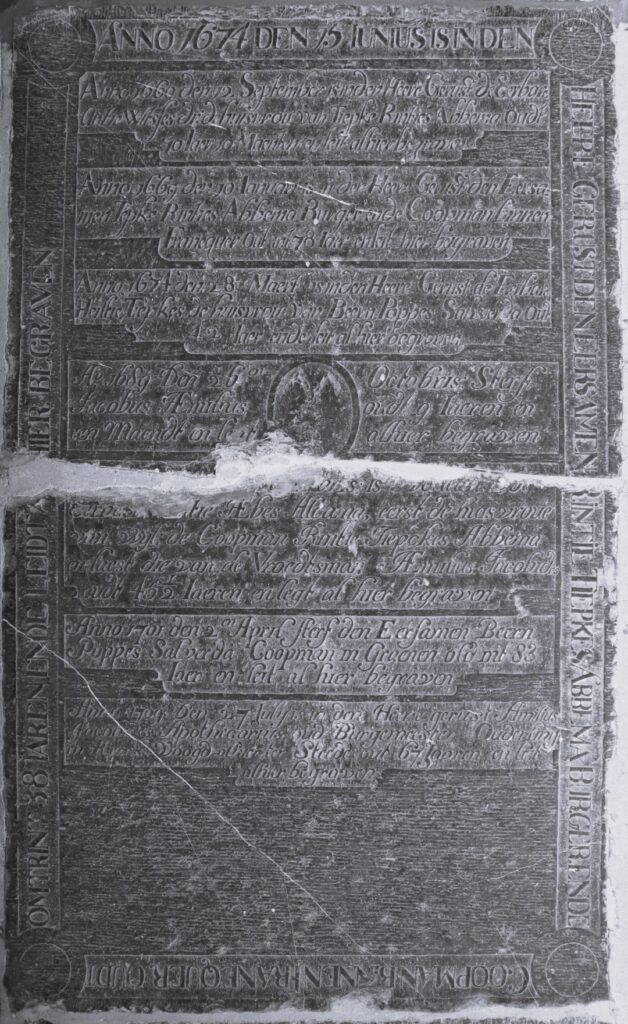 ANNO 1674 DEN 15 IUNIUS IS IN DEN
HEERE GERUST DEN EERSAMEN RINTIE TIEPKES ABBEMA BURGER ENDE
COOPMAN BINNEN FRANEQUER OUDT
OMTRINT 38 IAREN ENDE LEIDT HIER BEGRAVEN
Anno 1660 den 12 September is in der Heere Gerust de Eerbare
huisvrou van Tiepke Rinties Abbema Oudt
Iaer 10 Maenten en leit alhier begraven
Anno 1669 den 10 Ianuari is in der Heere Gerust den Eersa
men Tiepke Rinties Abbema Burger ende Coopman binnen
Franequer Out int 78 Iaer en leit hier begraven
Anno 1674 den 28 Maert is in den Heere Gerust de Eerbare
Hiltie Tiepkes de huisvrou van Beern Poppes Salverda Out
42 Iaer ende leit al hier begraven
Ao 1689 Den 26en Octobris Sterf
Jacobus Æmilius oudt 9 Iaeren en
een Maendt en leit alhier begraven
eerst de huisvrouw
van wyl de Coopman Rintie Tiepckes Abbema
en laest die van de Vroedtsman Æmilius Jacobus
oudt 45½ Iaeren en legt al hier begraven
Anno 1701 den 2en April sterf den Eersamen Beern
Poppes Salverda Coopman in Groenen old int 83
Iaer en leit al hier begraven
Anno den 27 July is in den Heere gerust Æmilius
Apothecarius old Burgemeester Ouderling
en Voogd deser Stede out 67 Iaaren en leit
alhier begraven